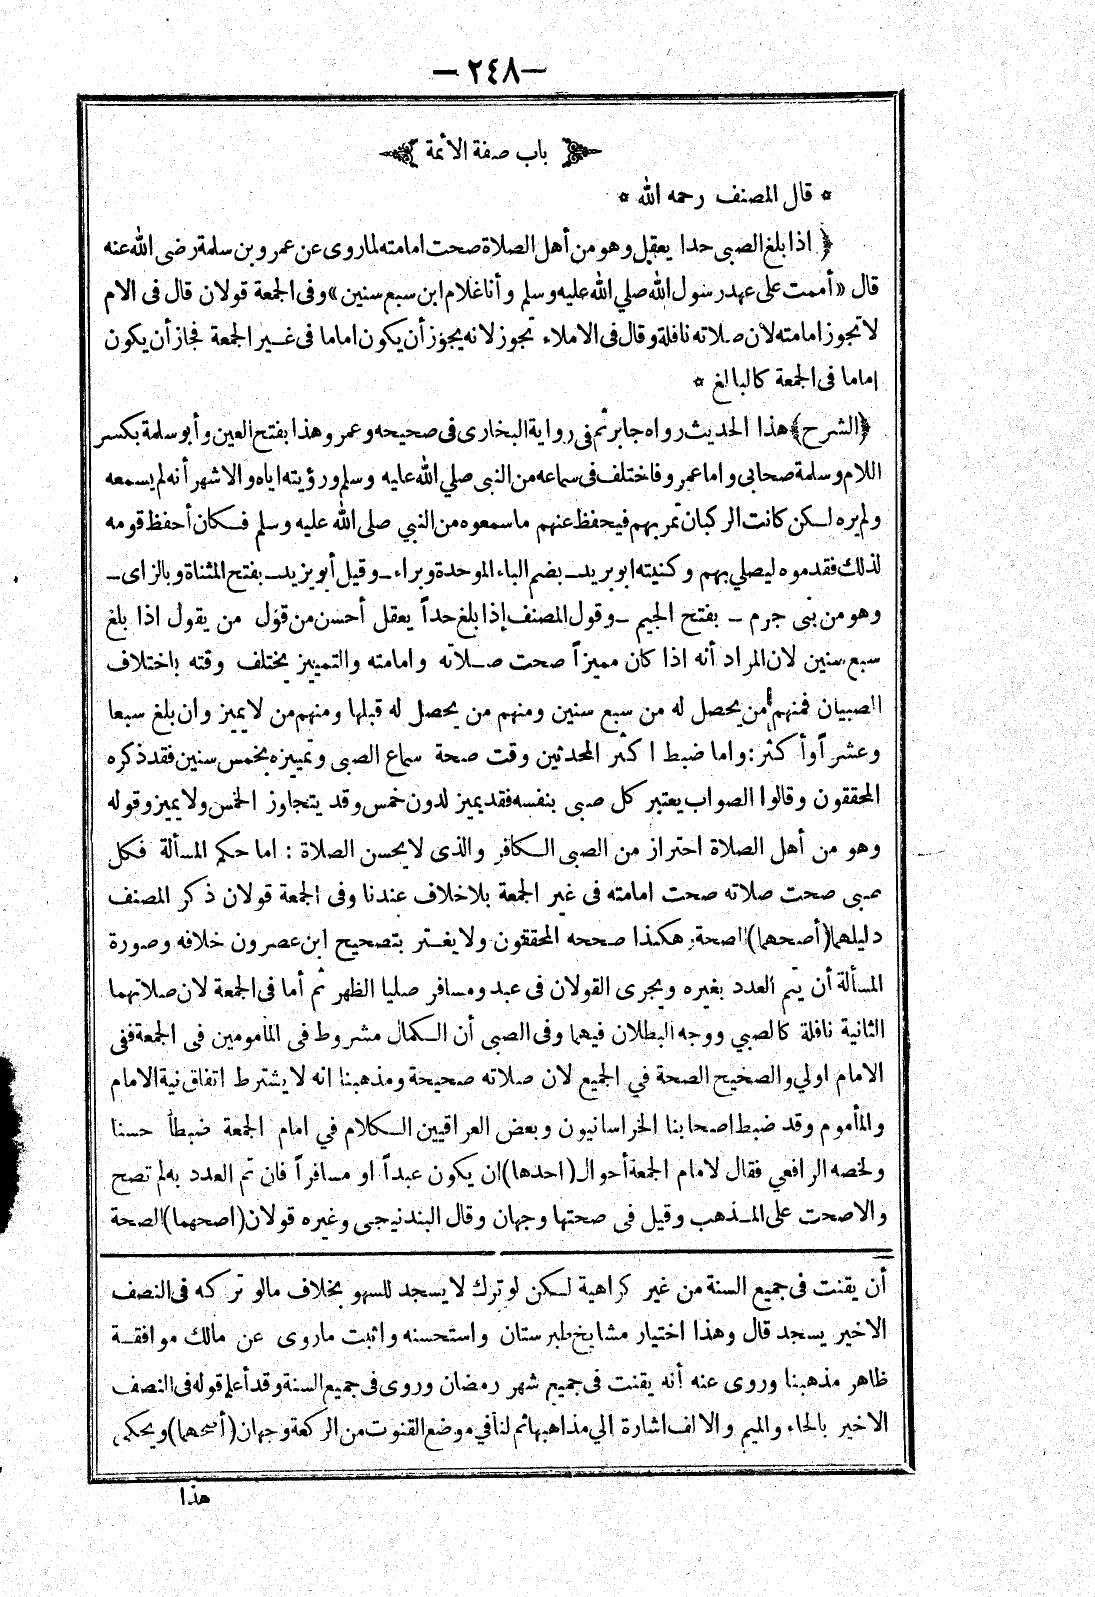 — ٢٤٨ —
باب صفة الأئمة
* قال المصنف رحمه الله *
﴿ اذا بلغ الصبى حدا يعقل وهو من أهل الصلاة صحت امامته لما روى عن عمرو بن سلمة رضى الله عنه
قال «أممت على عهد رسول الله صلي الله عليه وسلم وأنا غلام ابن سبع سنين» وفى الجمعة قولان قال فى الام
لا تجوز امامته لان صلاته نافلة وقال فى الاملاء تجوز لانه يجوز أن يكون اماما فى غير الجمعة فجاز أن يكون
إماما فى الجمعة كالبالغ *
﴿الشرح﴾ هذا الحديث رواه جابر ثم فى رواية البخارى فى صحيحه وعمرو هذا بفتح العين وأبو سلمة بكسر
اللام وسلمة صحابى واما عمرو فاختلف فى سماعه من النبى صلي الله عليه وسلم ورؤيته اياه والاشهر أنه لم يسمعه
ولم يره لكن كانت الركبان تمر بهم فيحفظ عنهم ما سمعوه من النبي صلى الله عليه وسلم فكان أحفظ قومه
لذلك فقدموه ليصلي بهم وكنيته ابو بريد ـ بضم الباء الموحدة وبراء ـ وقيل أبو يزيد ـ بفتح المثناة وبالزاى ـ
وهو من بنى جرم ـ بفتح الجيم ـ وقول المصنف إذا بلغ حداً يعقل أحسن من قول من يقول اذا بلغ
سبع سنين لان المراد أنه اذا كان مميزاً صحت صلاته وامامته والتمييز يختلف وقته باختلاف
الصبيان فمنهم من يحصل له من سبع سنين ومنهم من يحصل له قبلها ومنهم من لا يميز وان بلغ سبعا
وعشراً وأكثر : واما ضبط اكثر المحدثين وقت صحة سماع الصبى وتمييزه بخمس سنين فقد ذكره
المحققون وقالوا الصواب يعتبر كل صبى بنفسه فقد يميز لدون خمس وقد يتجاوز الخمس ولا يميز وقوله
وهو من أهل الصلاة احتراز من الصبى الكافر والذى لا يحسن الصلاة : اما حكم المسألة فكل
صبى صحت صلاته صحت امامته فى غير الجمعة بلا خلاف عندنا وفى الجمعة قولان ذكر المصنف
دليلهما (أصحهما) الصحة هكذا صححه المحققون ولا يغتر بتصحيح ابن عصرون خلافه وصورة
المسألة أن يتم العدد بغيره ويجرى القولان فى عبد ومسافر صليا الظهر ثم أما فى الجمعة لان صلاتهما
الثانية نافلة كالصبي ووجه البطلان فيهما وفى الصبى أن الكمال مشروط فى المأمومين فى الجمعة ففى
الامام اولي والصخيح الصحة في الجميع لان صلاته صحيحة ومذهبنا انه لا يشترط اتفاق نية الامام
والمأموم وقد ضبط اصحابنا الخراسانيون وبعض العراقيين الكلام في امام الجمعة ضبطاً حسنا
ولخصه الرافعي فقال لامام الجمعة أحوال (احدها) ان يكون عبداً او مسافراً فان تم العدد به لم تصح
والا صحت على المذهب وقيل فى صحتها وجهان وقال البندنيجى وغيره قولان (اصحهما) الصحة
أن يقنت فى جميع السنة من غير كراهية لكن لو ترك لا يسجد للسهو بخلاف مالو تركه فى النصف
الاخير يسجد قال وهذا اختيار مشايخ طبرستان واستحسنه واثبت ما روى عن مالك موافقة
ظاهر مذهبنا وروى عنه أنه يقنت فى جميع شهر رمضان وروى فى جميع السنة وقد أعلم قوله فى النصف
الاخير بالحاء والميم والالف اشارة الي مذاهبها ثم لنا في موضع القنوت من الركعة وجهان (أصحهما) ويحكى
هذا